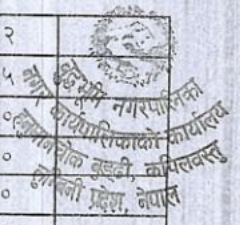 २
५
०
०
०
बुद्धभूमि नगरपालिका
नगर कार्यपालिकाको कार्यालय
हनुमानचोक बुड्ढी, कपिलवस्तु
लुम्बिनी प्रदेश, नेपाल